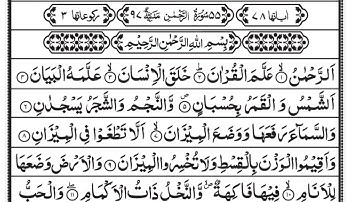 اٰیاتها ٧٨ ٥٥ سُوْرَةُ الرَّحْمٰنِ مَدَنِيَّةٌ ٩٧ رکوعاتها ٣
بِسْمِ اللّٰهِ الرَّحْمٰنِ الرَّحِيْمِ
اَلرَّحْمٰنُ ۙ﴿١﴾ عَلَّمَ الْقُرْاٰنَ ؕ﴿٢﴾ خَلَقَ الْاِنْسَانَ ۙ﴿٣﴾ عَلَّمَهُ الْبَيَانَ ﴿٤﴾
اَلشَّمْسُ وَ الْقَمَرُ بِحُسْبَانٍ ۪﴿٥﴾ وَّ النَّجْمُ وَ الشَّجَرُ يَسْجُدٰنِ ﴿٦﴾
وَ السَّمَآءَ رَفَعَهَا وَ وَضَعَ الْمِيْزَانَ ۙ﴿٧﴾ اَلَّا تَطْغَوْا فِي الْمِيْزَانِ ﴿٨﴾
وَ اَقِيْمُوا الْوَزْنَ بِالْقِسْطِ وَ لَا تُخْسِرُوا الْمِيْزَانَ ﴿٩﴾ وَ الْاَرْضَ وَضَعَهَا
لِلْاَنَامِ ۙ﴿١٠﴾ فِيْهَا فَاكِهَةٌ ۪ۙ وَّ النَّخْلُ ذَاتُ الْاَكْمَامِ ۖ﴿١١﴾ وَ الْحَبُّ